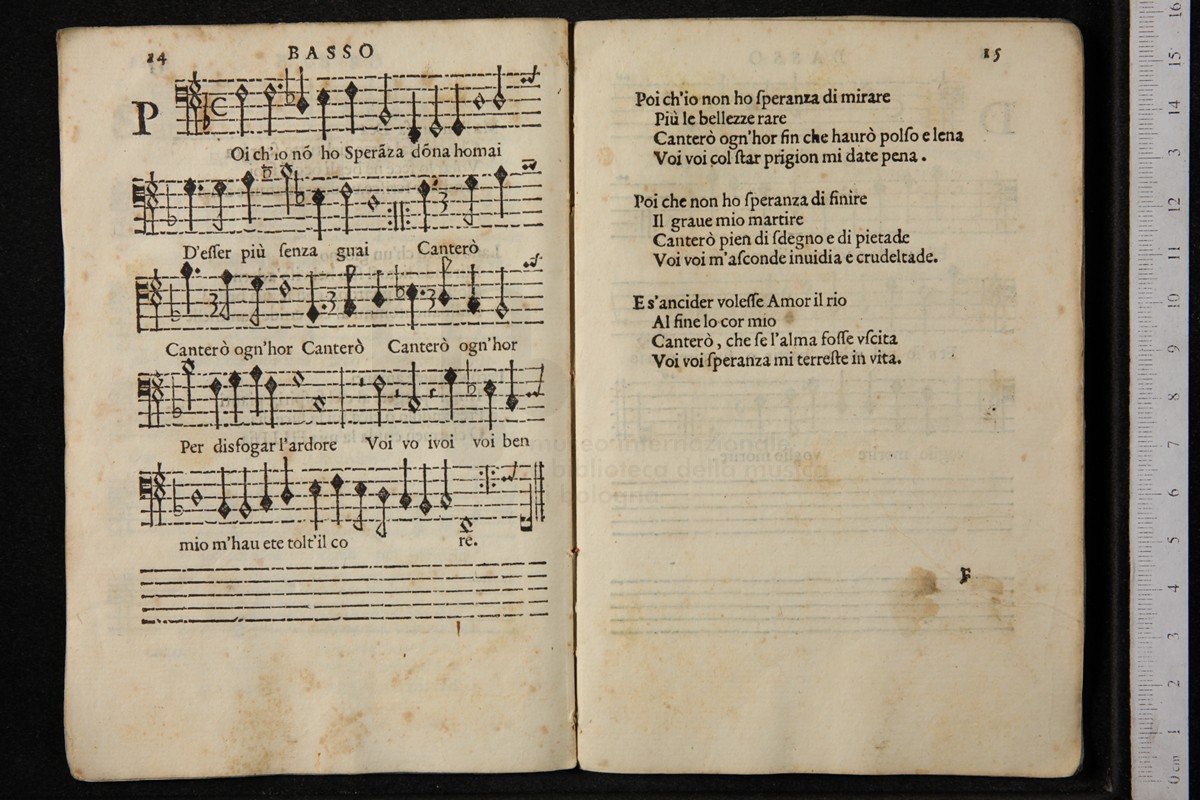 14
BASSO
P
Oi ch'io nõ ho Sperãza dõna homai
D'eſſer più ſenza guai Canterò
Canterò ogn'hor Canterò Canterò ogn'hor
Per disfogar l'ardore Voi vo ivoi voi ben
mio m'hau ete tolt'il co re.
15
Poi ch'io non ho ſperanza di mirare
Più le bellezze rare
Canterò ogn'hor fin che haurò polſo e lena
Voi voi col ſtar prigion mi date pena .
Poi che non ho ſperanza di finire
Il graue mio martire
Canterò pien di ſdegno e di pietade
Voi voi m'aſconde inuidia e crudeltade.
E s'ancider voleſſe Amor il rio
Al fine lo cor mio
Canterò , che ſe l'alma foſſe vſcita
Voi voi ſperanza mi terreſte in vita.
F
museo internazionale
biblioteca della musica
di bologna
16
15
14
13
12
11
10
9
8
7
6
5
4
3
2
1
0 cm